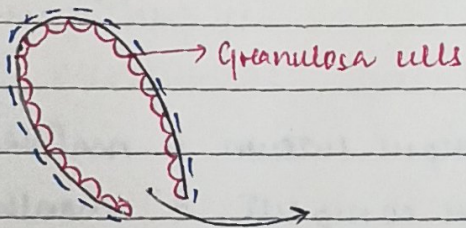 Granulosa cells